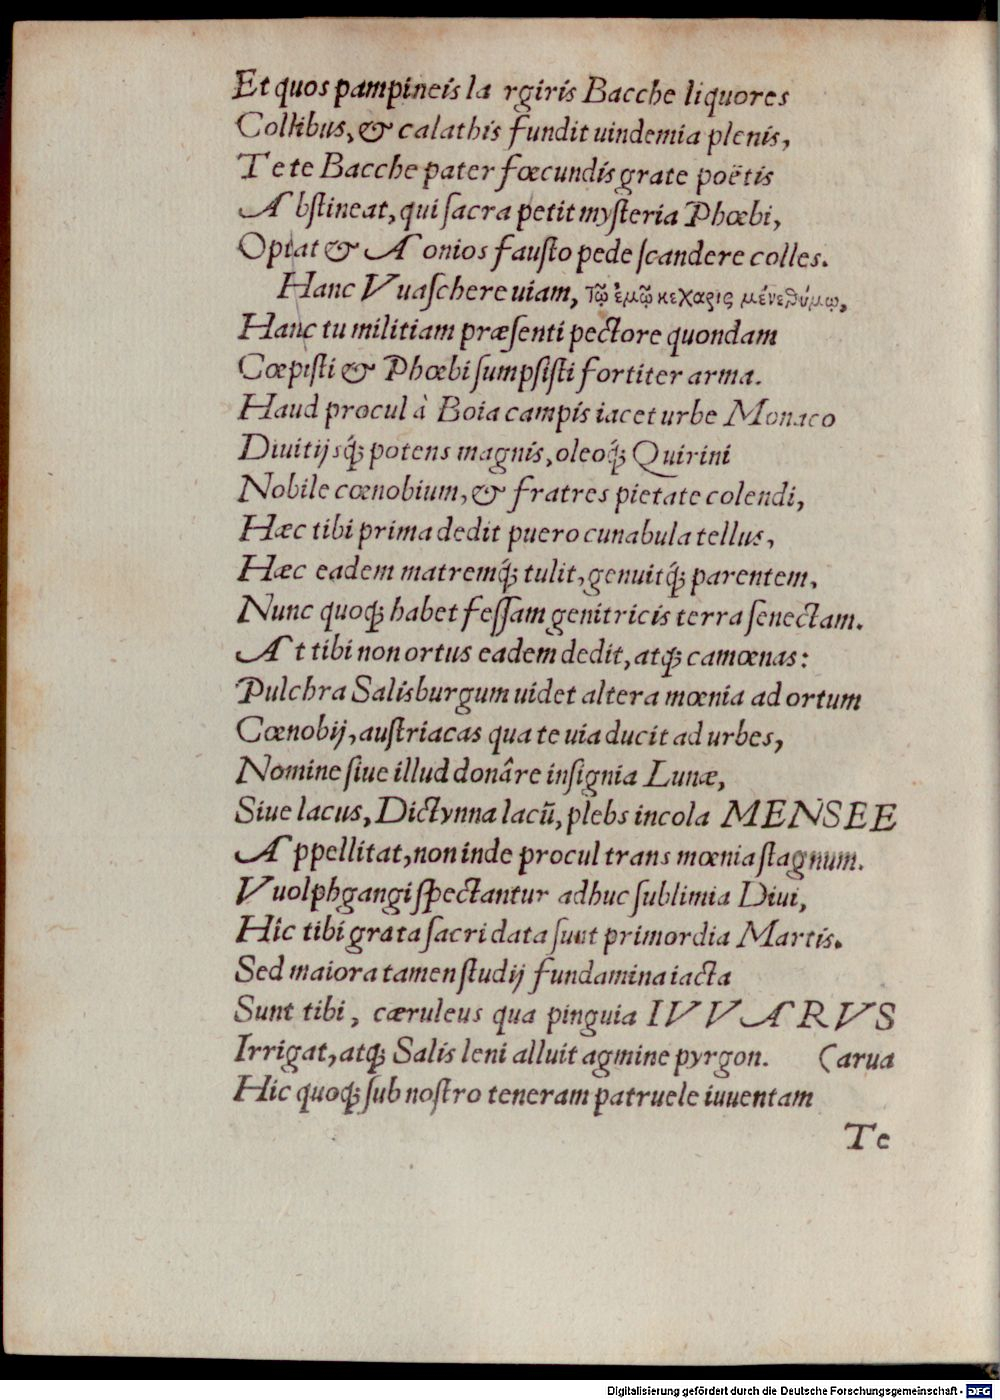 Et quos pampineis la rgiris Bacche liquores
Collibus, & calathis fundit uindemia plenis,
Te te Bacche pater fœcundis grate poëtis
Abstineat, qui sacra petit mysteria Phœbi,
Optat & Aonios fausto pede scandere colles.
Hanc Vuaschere uiam, τῷ ἐμῷ κεχαρις μένε θύμῳ,
Hanc tu militiam præsenti pectore quondam
Cœpisti & Phœbi sumpsisti fortiter arma.
Haud procul à Boia campis iacet urbe Monaco
Diuitijsq́; potens magnis, oleoq́; Quirini
Nobile cœnobium, & fratres pietate colendi,
Hæc tibi prima dedit puero cunabula tellus,
Hæc eadem matremq́; tulit, genuitq́; parentem,
Nunc quoq; habet fessam genitricis terra senectam.
At tibi non ortus eadem dedit, atq; camœnas:
Pulchra Salisburgum uidet altera mœnia ad ortum
Cœnobij, austriacas qua te uia ducit ad urbes,
Nomine siue illud donâre insignia Lunæ,
Siue lacus, Dictynna lacū, plebs incola MENSEE
Appellitat, non inde procul trans mœnia stagnum.
Vuolphgangi spectantur adhuc sublimia Diui,
Hîc tibi grata sacri data sunt primordia Martis.
Sed maiora tamen studij fundamina iacta
Sunt tibi, cæruleus qua pinguia IVVARVS
Irrigat, atq; Salis leni alluit agmine pyrgon. (arua
Hic quoq; sub nostro teneram patruele iuuentam
Te
Digitalisierung gefördert durch die Deutsche Forschungsgemeinschaft - DFG